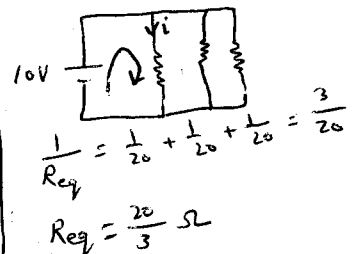 i
10V
1/Req = 1/20 + 1/20 + 1/20 = 3/20
Req = 20/3 Ω